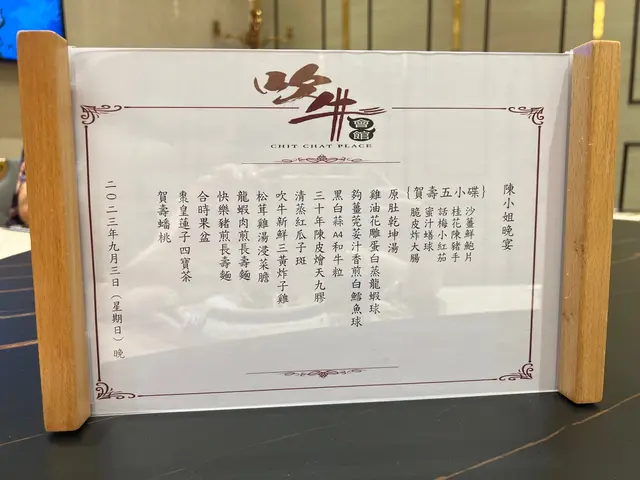 吹牛
會館
CHIT CHAT PLACE
陳小姐晚宴
{賀壽五小碟}
沙薑鮮鮑片
桂花陳豬手
話梅小紅茄
蜜汁鱔球
脆皮炸大腸
原肚乾坤湯
雞油花雕蛋白蒸龍蝦球
夠薑芫荽汁香煎白鱈魚球
黑白蒜A4和牛粒
三十年陳皮燴天九膠
清蒸紅瓜子斑
吹牛新鮮三黃炸子雞
松茸雞湯浸菜膽
龍蝦肉煎長壽麵
快樂豬煎長壽麵
合時果盆
棗皇蓮子四寶茶
賀壽蟠桃
二〇二三年九月三日(星期日)晚